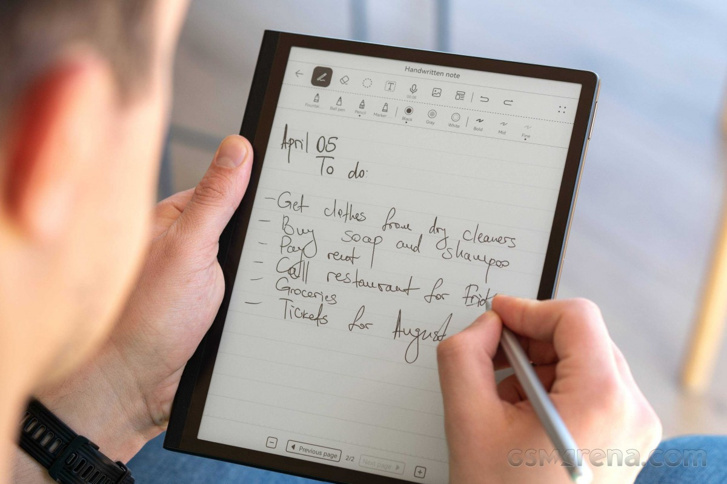 Handwritten note
April 05
To do
- Get clothes from dry cleaners
- Buy soap and shampoo
- Pay rent
- Call restaurant for Frid
- Groceries
- Tickets for August
Previous page 2/2 Next page
gsmarena.com